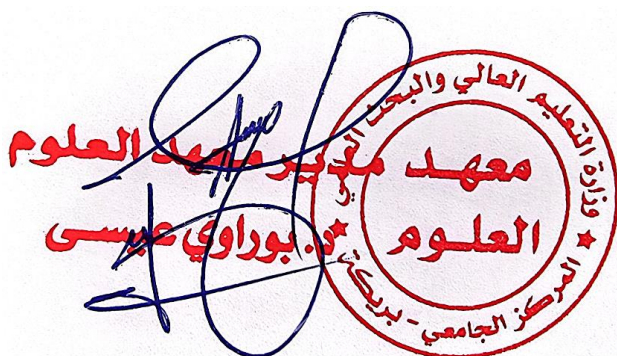 وزارة التعليم العالي والبحث العلمي
المركز الجامعي - بريكة
معهد
العلوم
مدير معهد العلوم
د. بوراوي عيسى